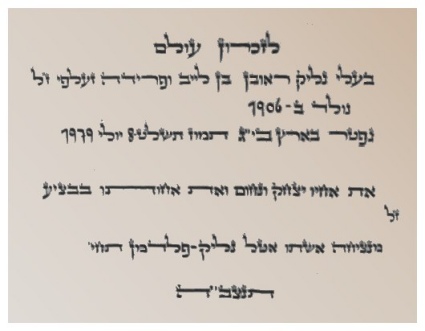 לזכרון עולם
בעלי גליק ראובן בן לייב ופרידה זעלפי ז״ל
נולד ב-1906
נפטר בארץ בי״ג תמוז תשל״ט 8 יולי 1979
את אחיו יצחק ונחום ואת אחותו בבציע
ז״ל
מנציחה אשתו אטל גליק-פלדמן תחי׳
תנצב״ה